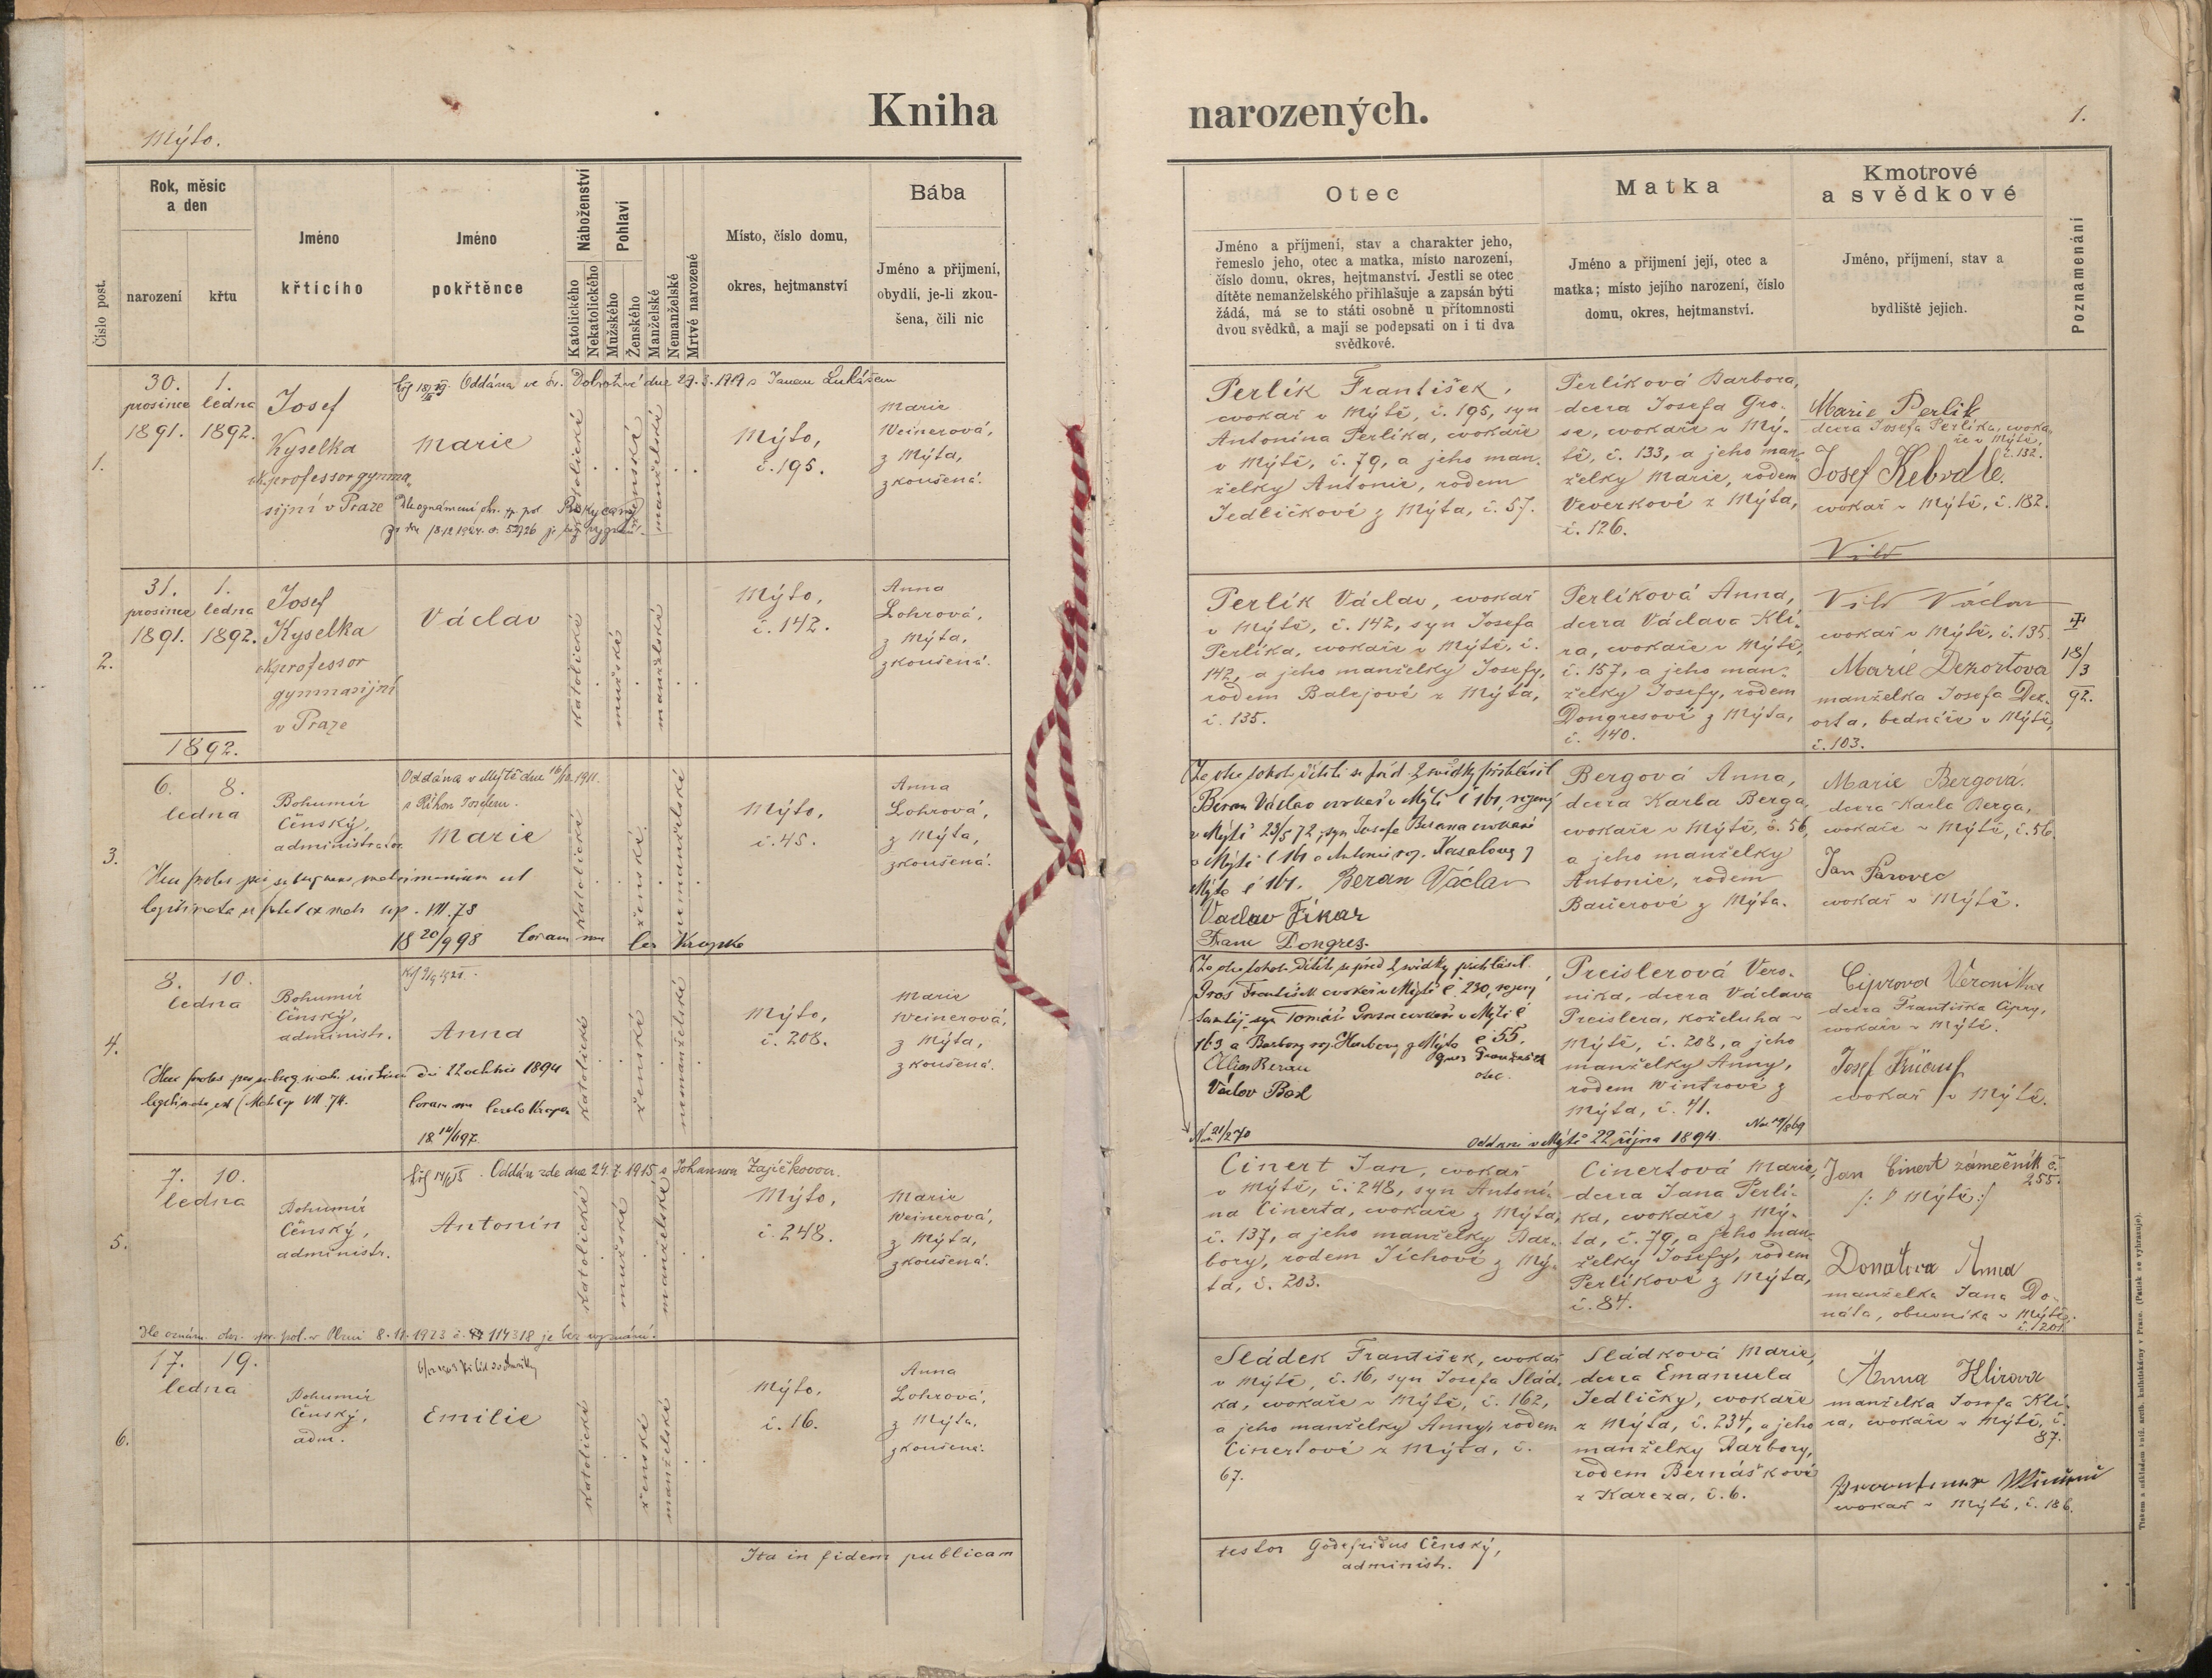 Kniha narozených.
Mýto.
1.
Rok, měsíc a den
narození
křtu
Číslo post.
Jméno křtícího
Jméno pokřtěnce
Náboženství
Katolického
Nekatolického
Pohlaví
Mužského
Ženského
Manželské
Nemanželské
Mrtvě narozené
Místo, číslo domu,
okres, hejtmanství
Bába
Jméno a přijmení,
obydlí, je-li zkou-
šena, čili nic
Otec
Jméno a příjmení, stav a charakter jeho,
řemeslo jeho, otec a matka, místo narození,
číslo domu, okres, hejtmanství. Jestli se otec
dítěte nemanželského přihlašuje a zapsán býti
žádá, má se to státi osobně u přítomnosti
dvou svědků, a mají se podepsati on i ti dva
svědkové.
Matka
Jméno a přijmení její, otec a
matka; místo jejího narození, číslo
domu, okres, hejtmanství.
Kmotrové
a svědkové
Jméno, příjmení, stav a
bydliště jejich.
Poznamenání
1.
30.
prosince
1891.
1.
ledna
1892.
Josef
Kyselka
professor gymna-
sijní v Praze
Oddána ve dne 29.3.1919 s Janem Lukášem
Marie
katolické
ženské
manželské
Mýto,
č. 195.
Marie
Weinerová,
z Mýta,
zkoušená.
Perlík František,
cvokař v Mýtě, č. 195, syn
Antonína Perlíka, cvokaře
v Mýtě, č. 79, a jeho man-
želky Antonie, rodem
Jedličkové z Mýta, č. 57.
Perlíková Barbora,
dcera Josefa Gro-
se, cvokaře v Mý-
tě, č. 133, a jeho man-
želky Marie, rodem
Veverkové z Mýta,
č. 126.
Marie Perlík
dcera Josefa Perlíka, cvoka-
ře v Mýtě,
č. 132.
Josef Kebrdle.
cvokař v Mýtě, č. 182.
2.
31.
prosince
1891.
1.
ledna
1892.
Josef
Kyselka
professor
gymnasijní
v Praze
Václav
katolické
mužské
manželské
Mýto,
č. 142.
Anna
Lohrová,
z Mýta,
zkoušená.
Perlík Václav, cvokař
v Mýtě, č. 142, syn Josefa
Perlíka, cvokaře v Mýtě, č.
142, a jeho manželky Josefy,
rodem Balejové z Mýta,
č. 135.
Perlíková Anna,
dcera Václava Klí-
ra, cvokaře v Mýtě,
č. 157, a jeho man-
želky Josefy, rodem
Dongresové z Mýta,
č. 140.
Václav
cvokař v Mýtě, č. 135.
Marie Dezortova
manželka Josefa Dez-
orta, bednáře v Mýtě,
č. 103.
18/3
92.
1892.
3.
6.
ledna
8.
Bohumír
Čěnský,
administrátor
Oddána v Mýtě dne 1911.
s Říhou Josefem.
Marie
katolické
ženské
nemanželské
Mýto,
č. 45.
Anna
Lohrová,
z Mýta,
zkoušená.
18 20/9 98 Coram me
Za otce tohoto dítěte se před 2 svědky přihlásil
Beran Václav cvokař v Mýtě č 161, rozený
v Mýtě 23/5 72, syn Josefa Berana cvokaře
Beran Václav
Vaclav Fikar
Dongres.
Bergová Anna,
dcera Karla Berga,
cvokaře v Mýtě, č. 56,
a jeho manželky
Antonie, rodem
Bauerové z Mýta.
Marie Bergová.
dcera Karla Berga,
cvokaře v Mýtě, č. 56.
Jan Parovec
cvokař v Mýtě.
4.
8.
ledna
10.
Bohumír
Čěnský,
administr.
Anna
katolické
ženské
nemanželské
Mýto,
č. 208.
Marie
Weinerová,
z Mýta,
zkoušená.
Za otce tohoto dítěte se před 2 svědky přihlásil
František cvokař v Mýtě č. 230, rozený
č 55.
Beran
Oddáni v Mýtě 22 října 1894.
Preislerová Vero-
nika, dcera Václava
Preislera, koželuha v
Mýtě, č. 208, a jeho
manželky Anny,
rodem Wintrové z
Mýta, č. 41.
Ciprova Veronika
dcera Františka Cipry,
cvokaře v Mýtě.
Josef
cvokař v Mýtě.
5.
7.
ledna
10.
Bohumír
Čěnský,
administr.
Oddán zde dne 24.7.1915 s Johannou Zajíčkovou.
Antonín
katolické
mužské
manželské
Mýto,
č. 248.
Marie
Weinerová,
z Mýta,
zkoušená.
Dle oznám. okr. spr. pol. v Plzni 8.11.1923 č. 114318 je bez vyznání.
Cinert Jan, cvokař
v Mýtě, č. 248, syn Antoní-
na Cinerta, cvokaře z Mýta,
č. 137, a jeho manželky Bar-
bory, rodem Jíchové z Mý-
ta, č. 203.
Cinertová Marie,
dcera Jana Perlí-
ka, cvokaře z Mý-
ta, č. 79, a jeho man-
želky Josefy, rodem
Perlíkové z Mýta,
č. 84.
Jan Cinert zámečník č.
255.
/: v Mýtě :/
Donátova Anna
manželka Jana Do-
náta, obuvníka v Mýtě,
č. 201.
6.
17.
ledna
19.
Bohumír
Čěnský,
adm.
Emilie
katolické
ženské
manželské
Mýto,
č. 16.
Anna
Lohrová,
z Mýta,
zkoušená.
Sládek František, cvokař
v Mýtě, č. 16, syn Josefa Slád-
ka, cvokaře v Mýtě, č. 162,
a jeho manželky Anny, rodem
Cinertové z Mýta, č.
67.
Sládková Marie,
dcera Emanuela
Jedličky, cvokaře
z Mýta, č. 234, a jeho
manželky Barbory,
rodem Bernáškové
z Kařeza, č. 6.
Anna Klírova
manželka Josefa Klí-
ra, cvokaře v Mýtě, č.
87.
cvokař v Mýtě, č. 186.
Ita in fidem publicam
testor Godefridus Čěnský,
administr.